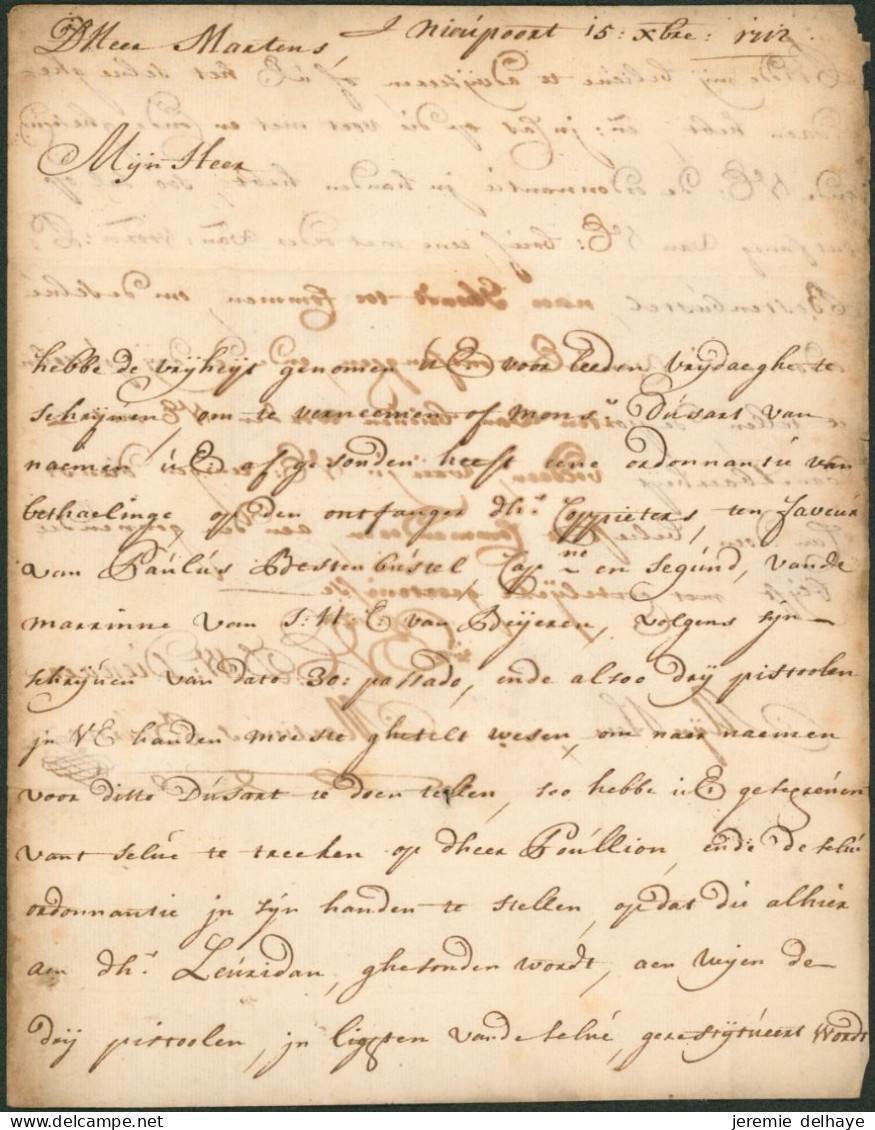 DHeer Martens
J Nieúpoort 15: xbre: 1712.
Mijn Heer
hebbe de vrijheijt genomen UE voorleeden vrijdaeghe te
schrijúen, om te verneemen of Mons.r Dúsart van
naemen UE afgesonden heeft eene ordonnantie van
bethaelinge, op den ontfanger dh.r Coppieters, ten faveúr
van Paúlús Bestenbústel Capne en Segúnd, vande
marrinne vom S: H: E van Beijeren, volgens sijn
schrijúen van dato 30: passado, ende alsoo drij pistoolen
jn VE handen moeste ghetelt wesen, om naer naemen
voor ditto Dúsart te doen tellen, soo hebbe UE geschreúen
vant selúe te trecken op dheer Poúllion, ende de selúe
ordonnantie jn sijn handen te stellen, op dat die alhier
aen dh.r Leúridan, ghesonden wordt, aen wijen de
drij pistoolen, jn ligten vande selúe, gerestitúeert wordt
delcampe.net
jeremie delhaye